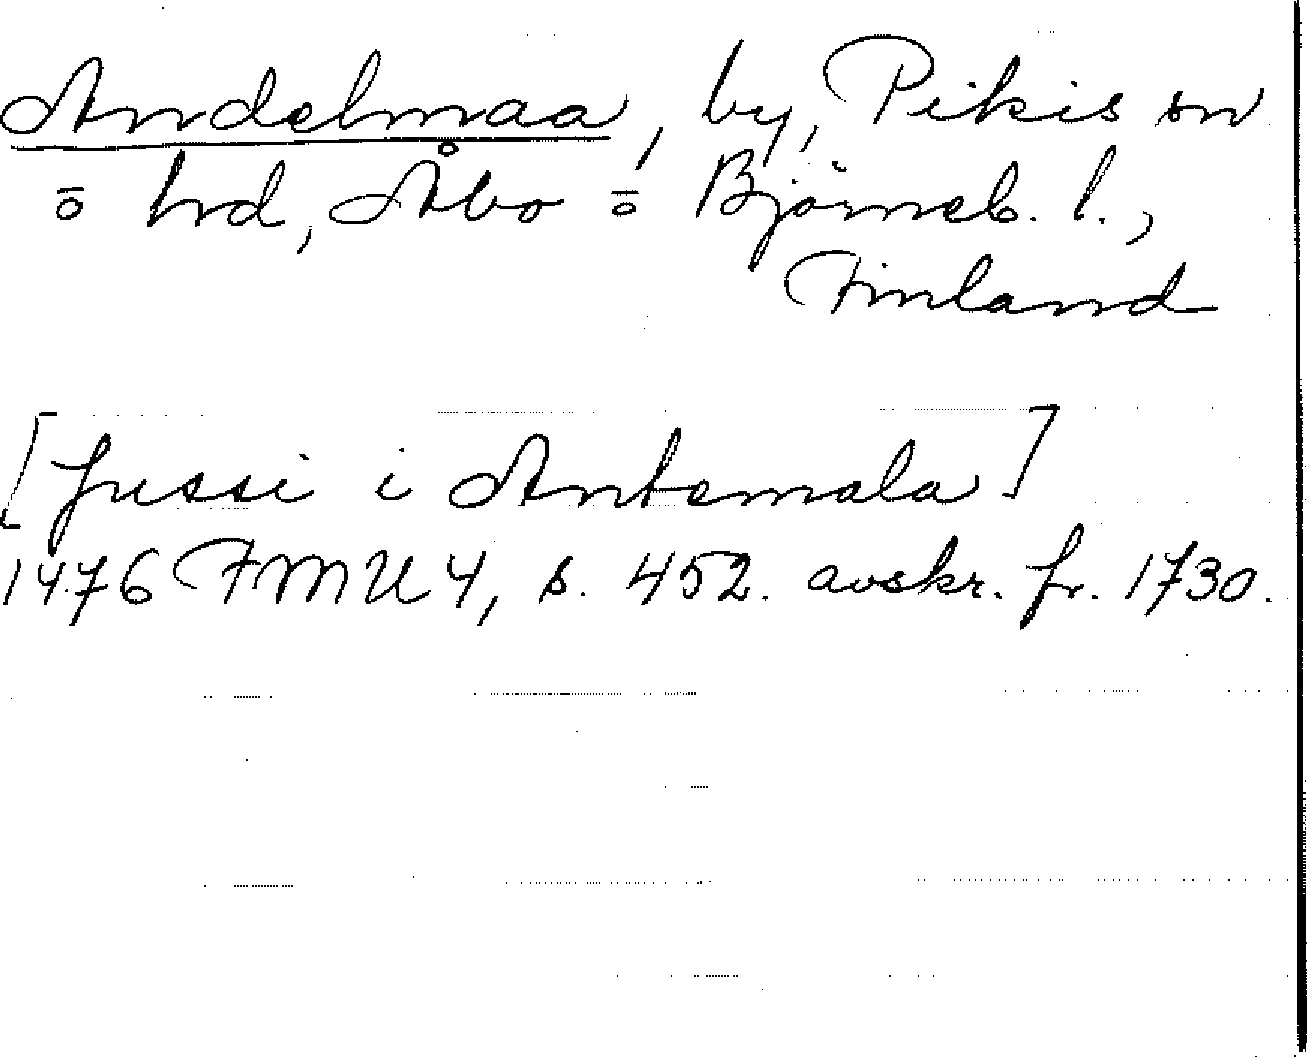 Andelmaa, by, Pikis sn
o̅ hd, Åbo o̅ Björneb. l.,
Finland
[Jussi i Antemala]
1476 FMU 4, s. 452. avskr. fr. 1730.